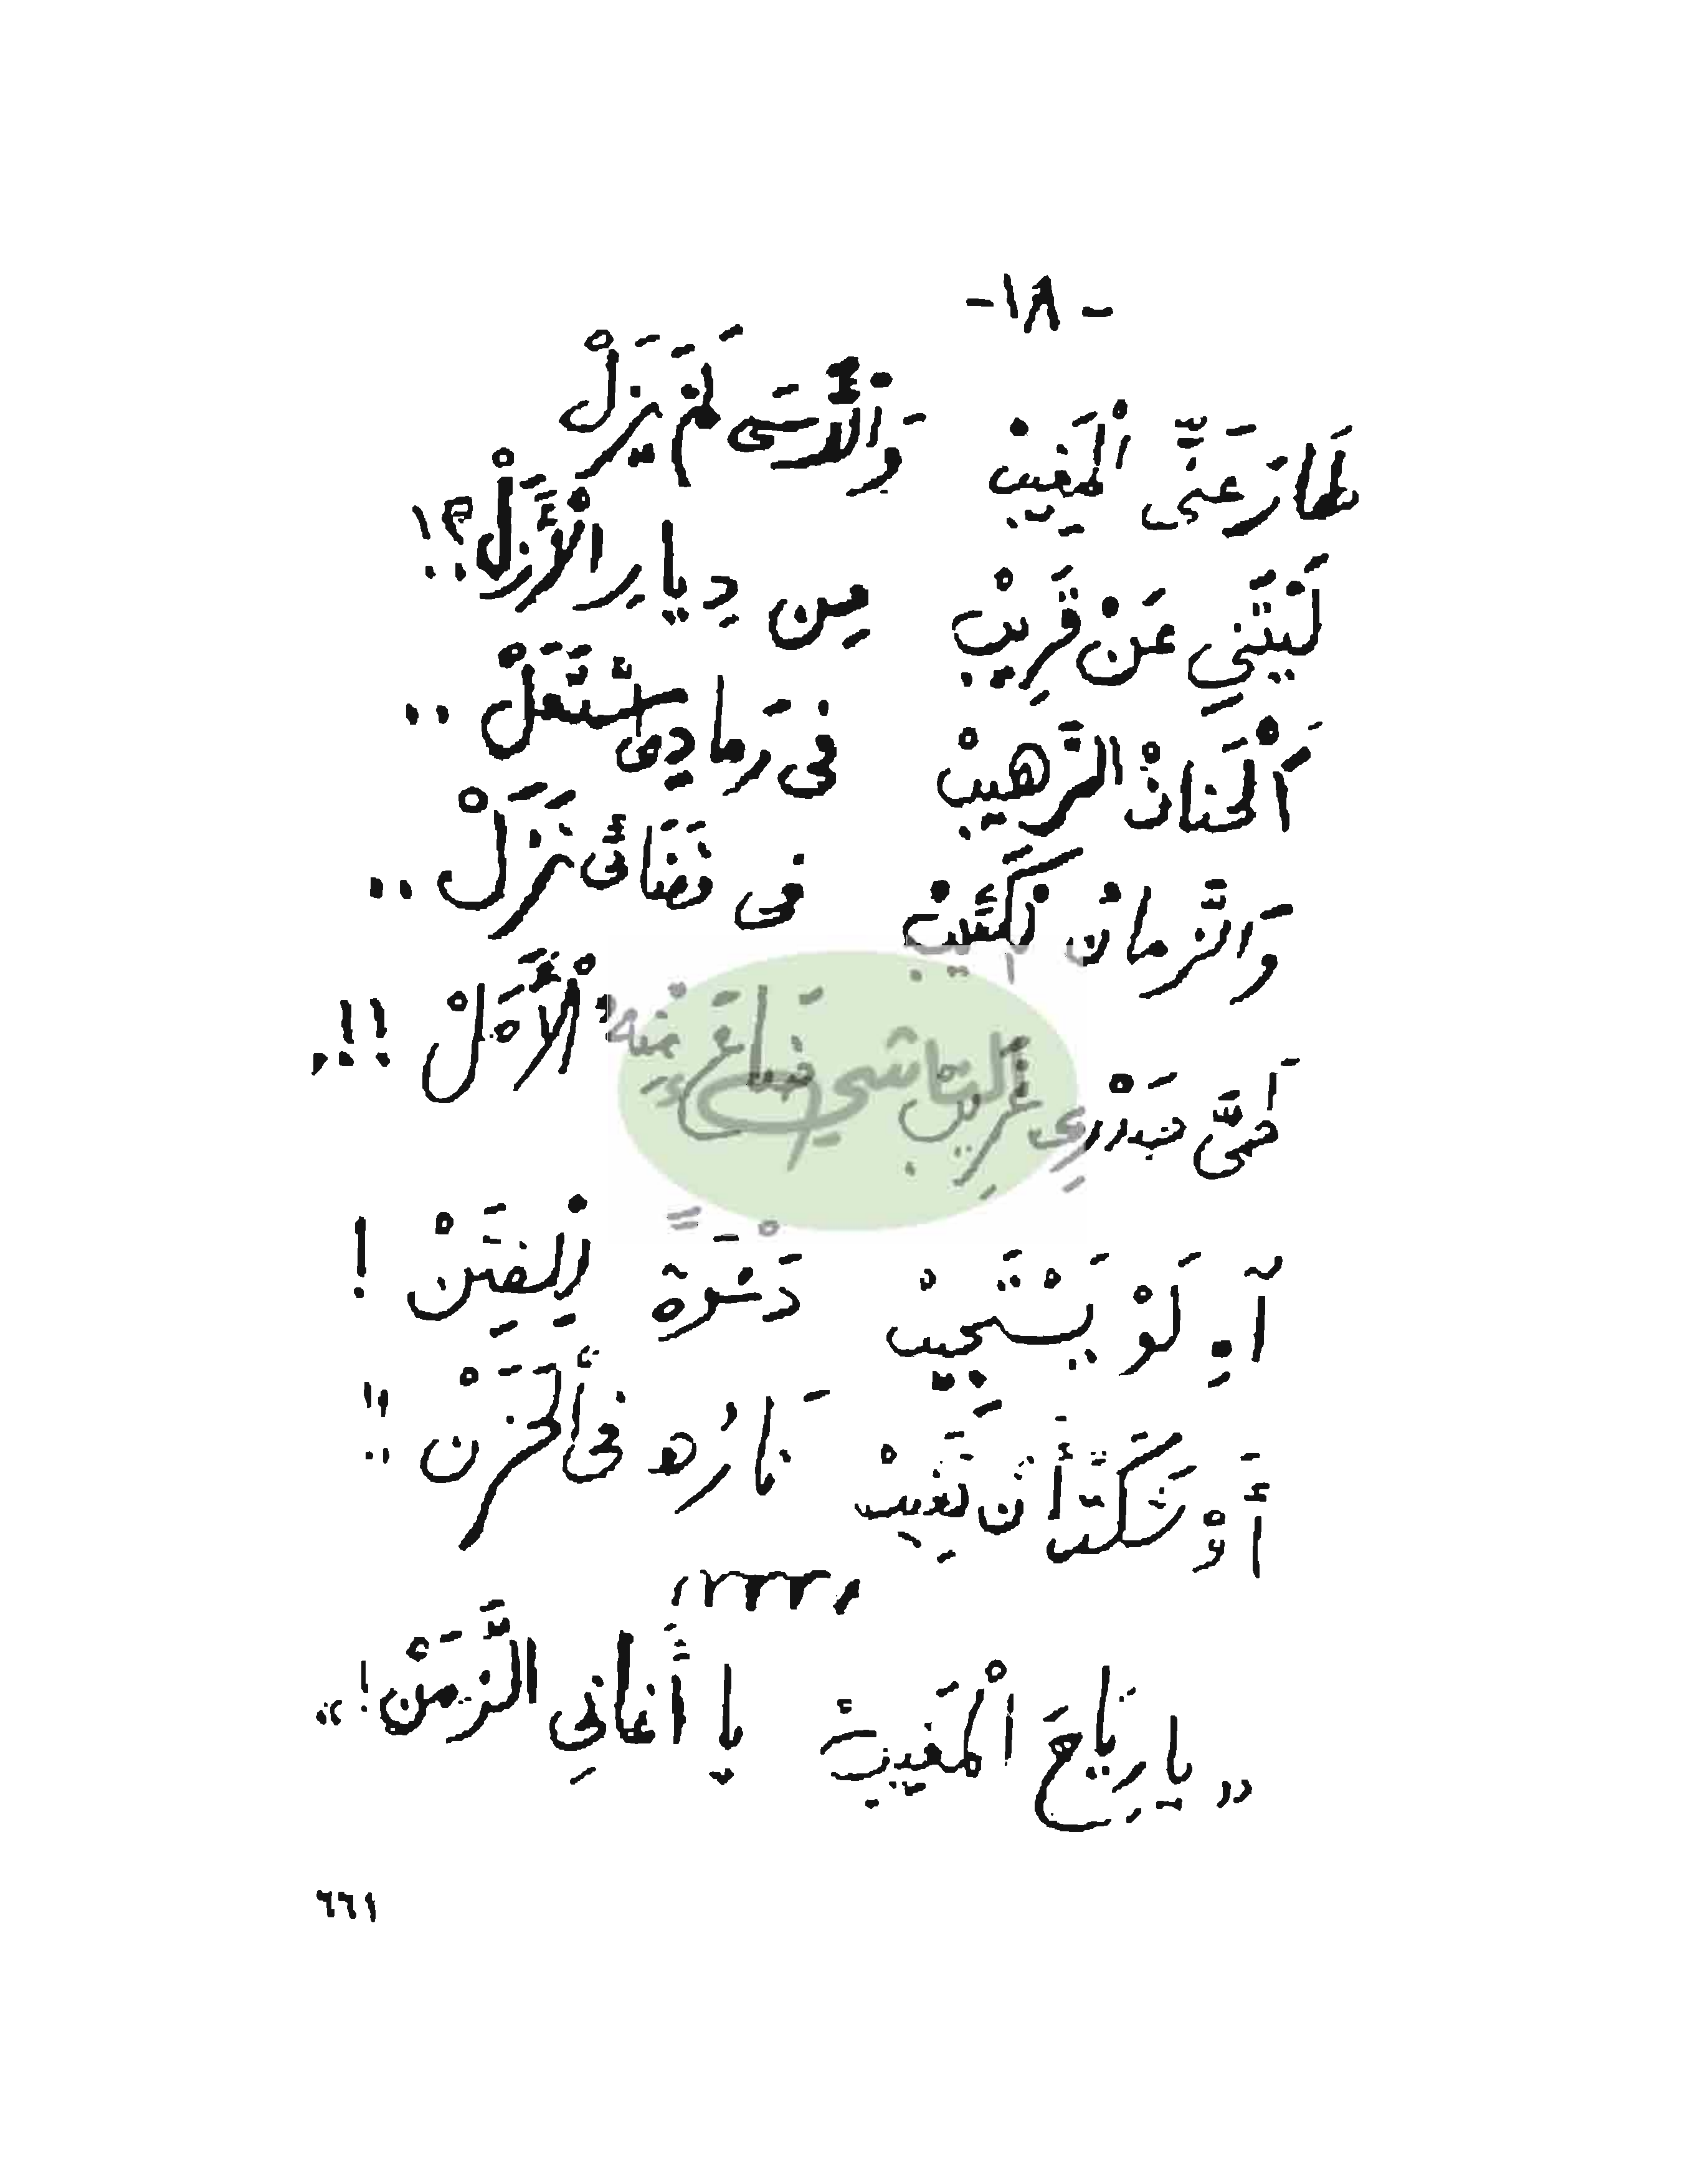 - ١٨ -
طَارَ عَنِّى الْمَغِيبْ وَالْأَسَى لَمْ يَزَلْ
لَيْتَنِي عَنْ قَرِيبْ مِن دِيارِ الْأَزَلْ؟!
اَلْحَنانْ الرَّهِيبْ فى رَمادِى اشْتَعَلْ ..
وَالزَّمانُ الْكَئِيبْ فى فَضَائى نَزَلْ ..
صَدْرِى غَرِيبْ ضَاعَ مِنْهُ الْأَمَلْ !!.
آهِ لَوْ يَسْتَجِيبْ دَعْوَةً لِلْفِتَنْ !
أَوْ تَكَدْ أَن تَغِيبْ نَارُه فى الْحَزَنْ !!
« يا رِيَاحَ الْمَغِيبْ يا أَغانِى الزَّمَنْ! »
٦٦١